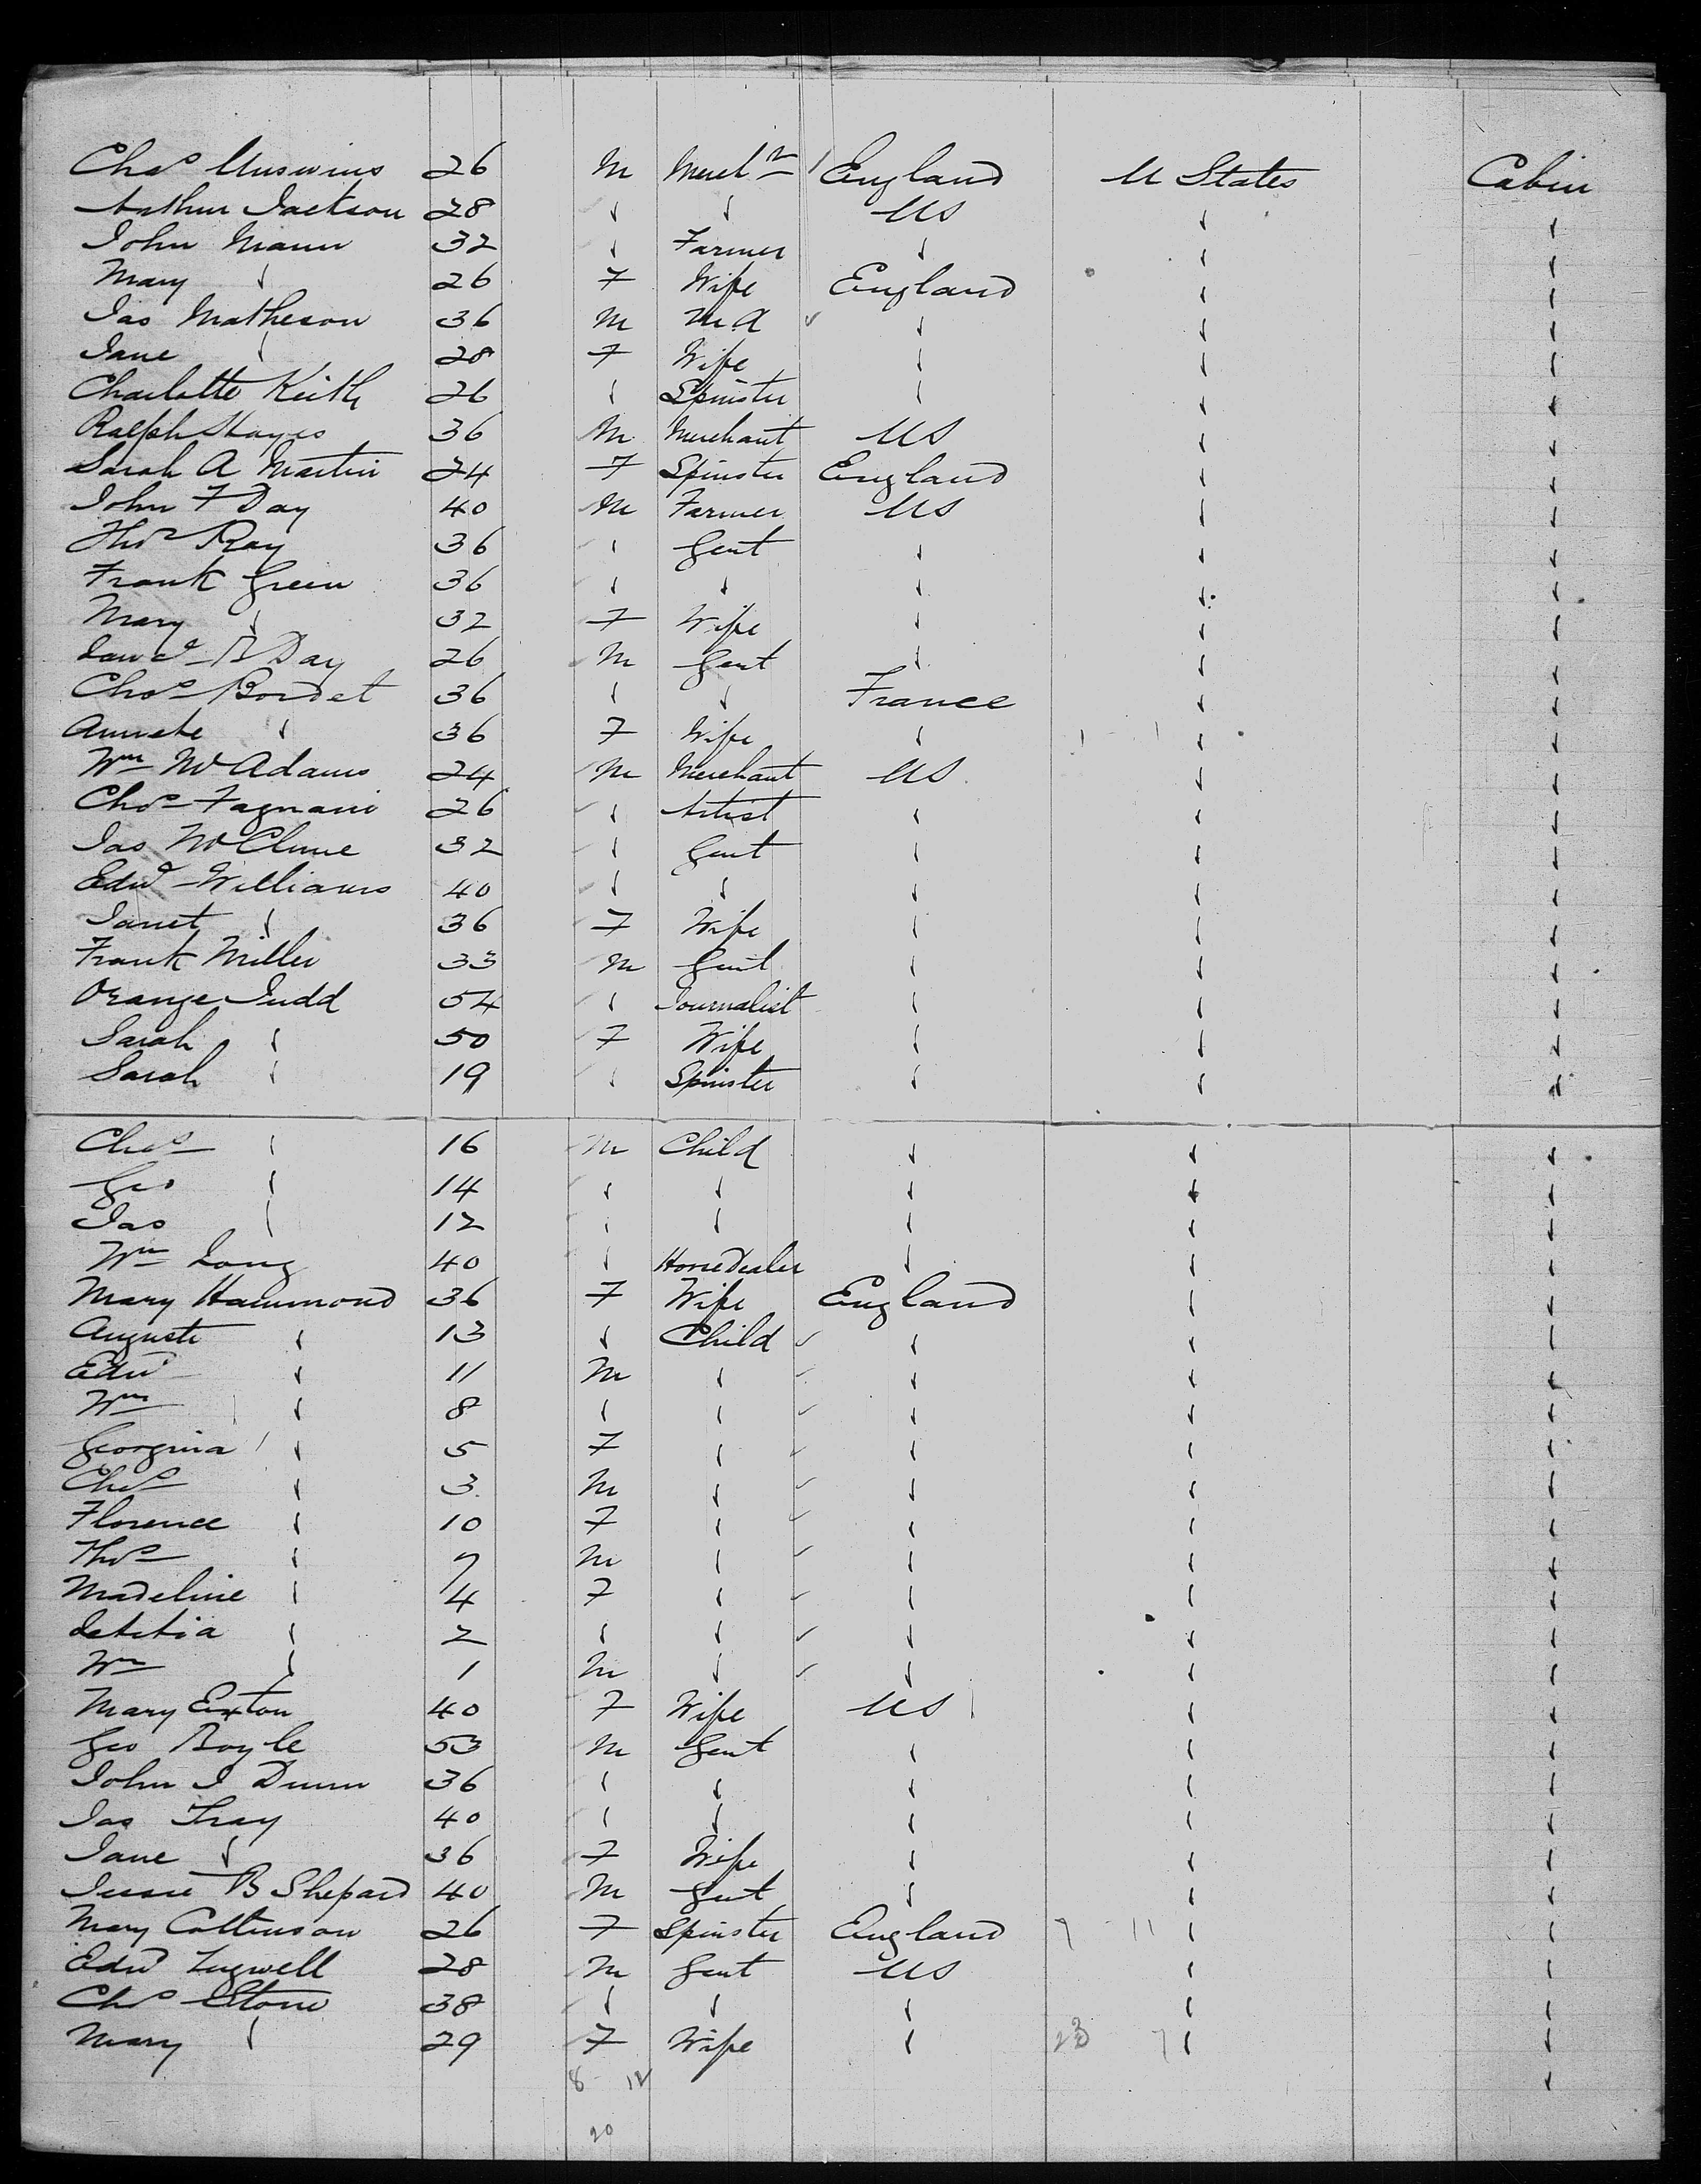 Chas Unswins 26 M Mercht England U States Cabin
Arthur Jackson 28 " " US " "
John Mann 32 " Farmer " " "
Mary " 26 F Wife England " "
Jas Matheson 36 M M.A " " "
Jane " 28 F Wife " " "
Charlotte Keith 26 " Spinster " " "
Ralph Hayes 36 M Merchant US " "
Sarah A Martin 24 F Spinster England " "
John F Day 40 M Farmer US " "
Thos Ray 36 " Gent " " "
Frank Green 36 " " " " "
Mary " 32 F Wife " " "
B Day 26 M Gent " " "
Chas Bordet 36 " " France " "
Annete " 36 F Wife " " "
Wm McAdams 24 M Merchant US " "
Chas Fagnani 26 " Artist " " "
Jas McClune 32 " Gent " " "
Edwd Williams 40 " " " " "
Janet " 36 F Wife " " "
Frank Miller 33 M Gent " " "
Orange Judd 54 " Journalist " " "
Sarah " 50 F Wife " " "
Sarah " 19 " Spinster " " "
Chas " 16 M Child " " "
Geo " 14 " " " " "
Jas " 12 " " " " "
Wm Long 40 " Horse Dealer " " "
Mary Hammond 36 F Wife England " "
Auguste " 13 " Child " " "
Edwd " 11 M " " " "
Wm " 8 " " " " "
Georgina " 5 F " " " "
Chas " 3 M " " " "
Florence " 10 F " " " "
Thos " 7 M " " " "
Madeline " 4 F " " " "
Letitia " 2 " " " " "
Wm " 1 M " " " "
Mary Exton 40 F Wife US " "
Geo Boyle 53 M Gent " " "
John J Dunn 36 " " " " "
Jas 40 " " " " "
Jane " 36 F Wife " " "
Jessie B Shepard 40 M Gent " " "
Mary Cottinson 26 F Spinster England 7 11 " "
Edwd Tugwell 28 M Gent US " "
Chas Stone 38 " " " " "
Mary " 29 F Wife " 23 7 " "
8 12
20